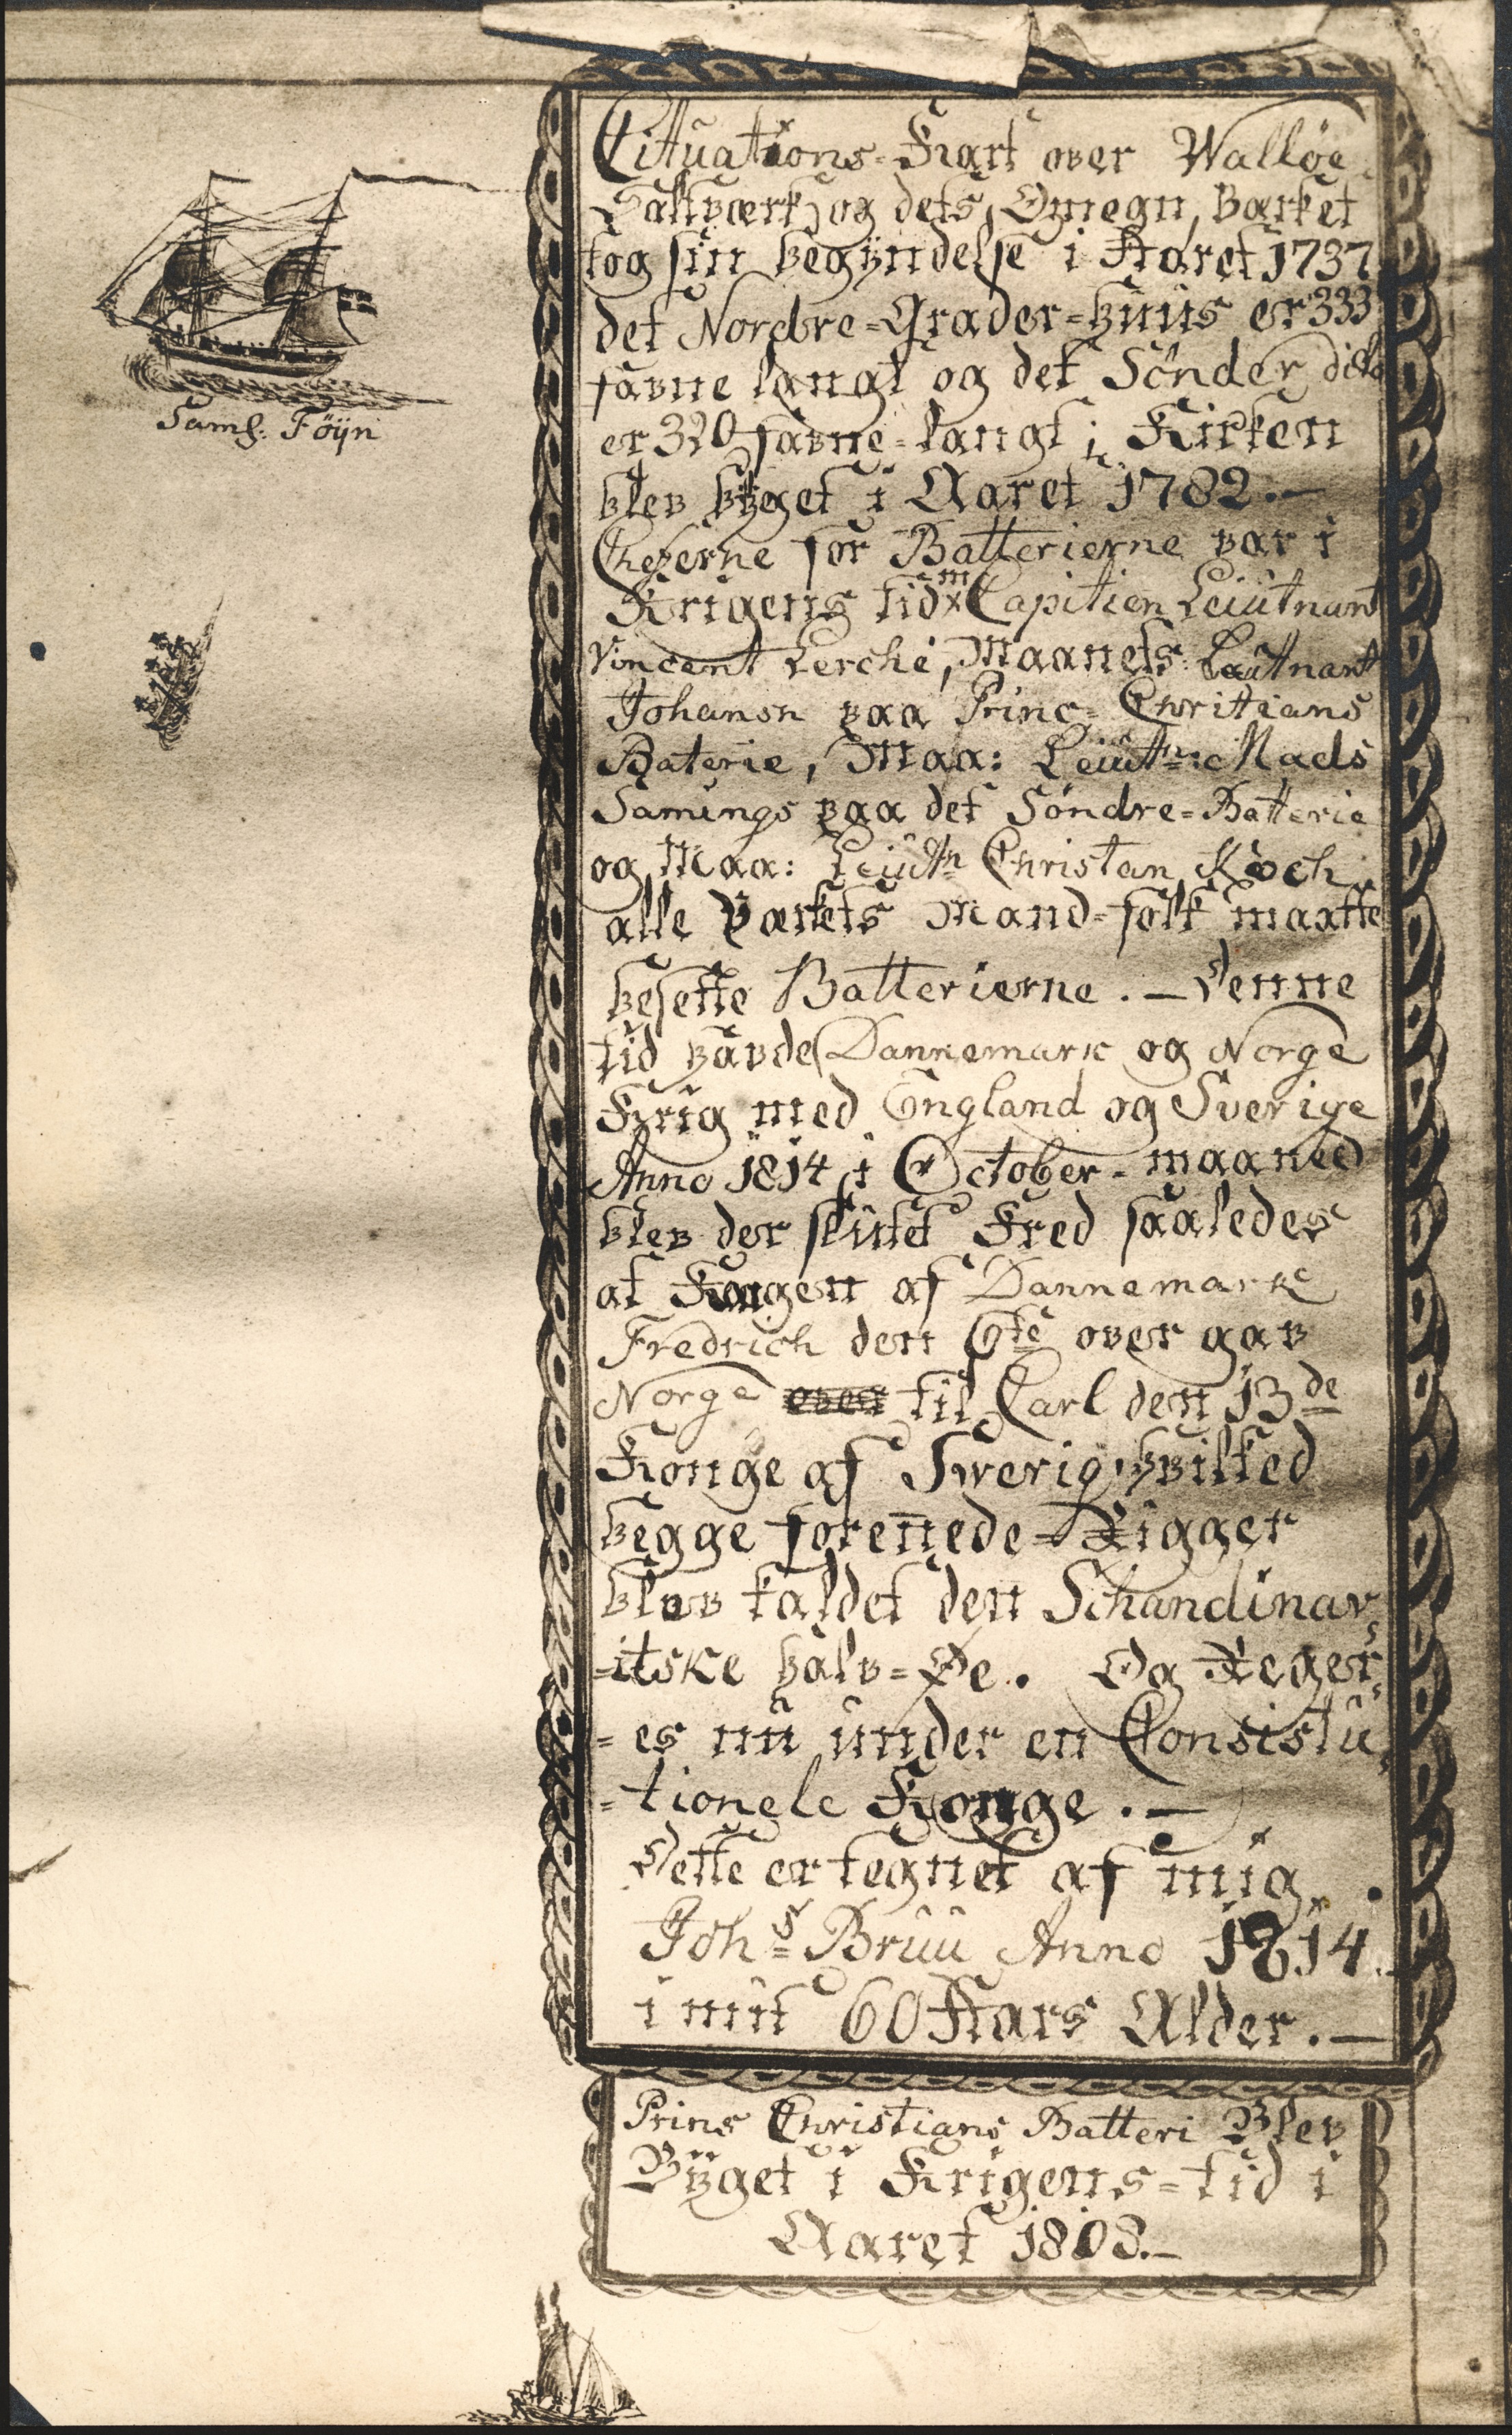 Cituations-Kart over Walløe
Saltværk, og dets Omegn, Varket
tog sin begyndelse i Aaret 1737
det Nordre-Grader-huus er 333
favne langt og det Sönder dito
er 320 favne-langt; Kirken
blev byget i Aaret 1782.—
Cheferne for Batterierne var i
Krigens tid Capitien Leiutnant
Vincent Lerche, Maanets: Lautnant
Johansn paa Princ= Christians
Baterie, Maa: Leiutn: Mads
Samings paa det Söndre=Batterie
og Maa: Leiutn Christan Koch.
alle Værkets Mand=folk maatte
besette Batterierne.—Denne
tid havde Dannemark og Norge
Krig med England og Sverige
Anno 1814 i October-maaned
blev der slutet Fred saaledes
at Kongen af Dannemark
Fredrich den 6te over gav
Norge over til Carl den 13de
Konge af Swerig, hvilked
begge forenede=Rigger
blev kaldet den Schandinav
=itske halv=Øe. Og Reger=
=es nu under en Consistu
=tionele Konge.—
Dette er tegnet af mig.
Johs Bruu Anno 1814.
i mit 60 Aars Alder.—
Prins Christians Batteri Blev
Byget i Krigens=tid i
Aaret 1808.—
Saml: Föyn